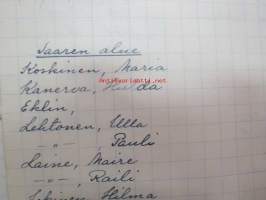 Saaren alue
Koskinen, Maria
Kanerva, Hilda
Eklin,
Lehtonen, Ulla
-"- , Pauli
Laine, Maire
-"- , Raili
Hilma